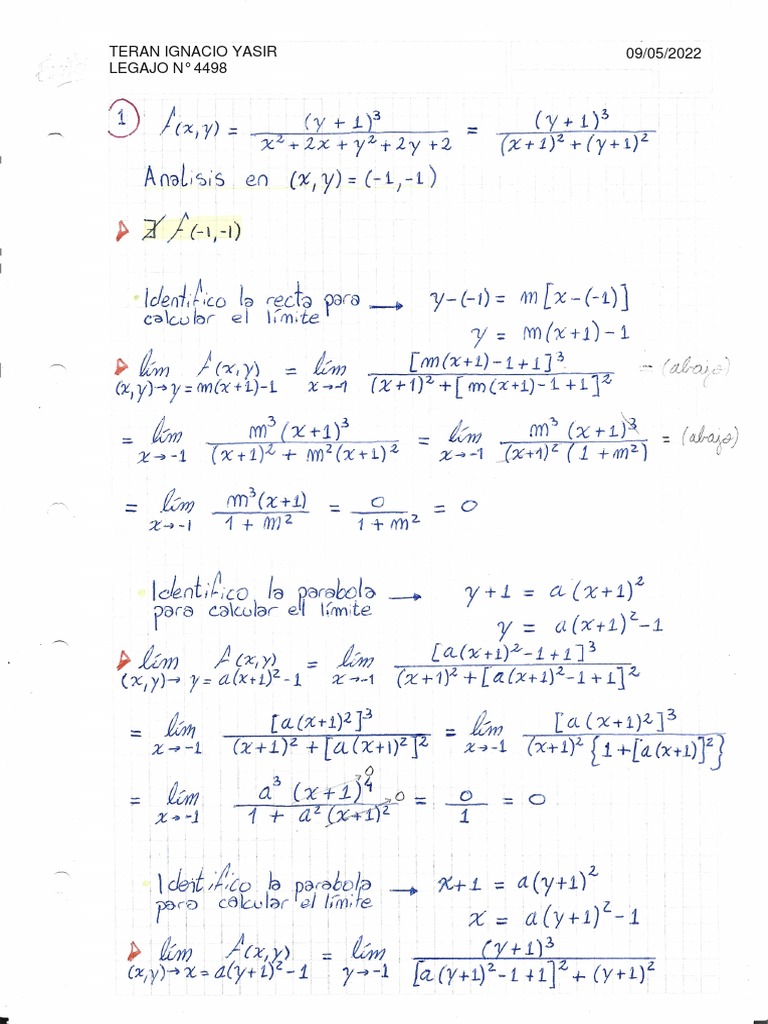 TERAN IGNACIO YASIR 09/05/2022
LEGAJO N° 4498
1 f(x,y) = (y+1)³ / (x²+2x+y²+2y+2) = (y+1)³ / ((x+1)²+(y+1)²)
Analisis en (x,y)=(-1,-1)
∄ f(-1,-1)
Identifico la recta para → y-(-1) = m[x-(-1)]
calcular el límite
y = m(x+1)-1
lím (x,y)→y=m(x+1)-1 f(x,y) = lím x→-1 [m(x+1)-1+1]³ / ((x+1)²+[m(x+1)-1+1]²) = (abajo)
= lím x→-1 m³(x+1)³ / ((x+1)²+m²(x+1)²) = lím x→-1 m³(x+1)³ / ((x+1)²(1+m²)) = (abajo)
= lím x→-1 m³(x+1) / (1+m²) = 0 / (1+m²) = 0
Identifico la parabola → y+1 = a(x+1)²
para calcular el límite
y = a(x+1)²-1
lím (x,y)→y=a(x+1)²-1 f(x,y) = lím x→-1 [a(x+1)²-1+1]³ / ((x+1)²+[a(x+1)²-1+1]²)
= lím x→-1 [a(x+1)²]³ / ((x+1)²+[a(x+1)²]²) = lím x→-1 [a(x+1)²]³ / ((x+1)²{1+[a(x+1)]²})
= lím x→-1 a³(x+1)⁴ →0 / (1+a²(x+1)² →0) = 0 / 1 = 0
Identifico la parabola → x+1 = a(y+1)²
para calcular el límite
x = a(y+1)²-1
lím (x,y)→x=a(y+1)²-1 f(x,y) = lím y→-1 (y+1)³ / ([a(y+1)²-1+1]²+(y+1)²)